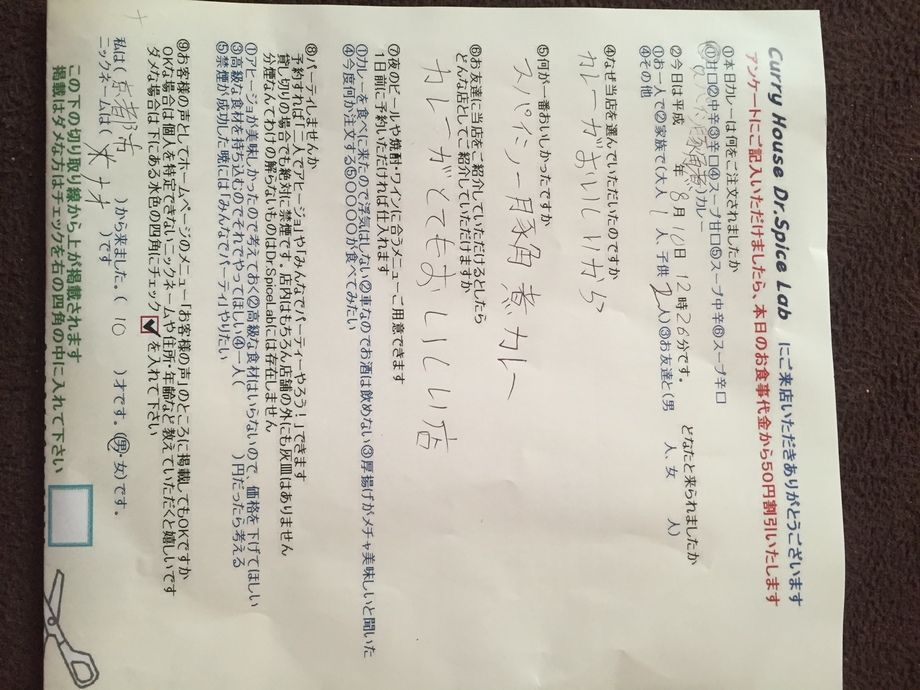 Curry House Dr.Spice Lab にご来店いただきありがとうございます
アンケートにご記入いただけましたら、本日のお食事代金から50円割引いたします
①本日カレーは何をご注文されましたか
①甘口②中辛③辛口④スープ甘口⑤スープ中辛⑥スープ辛口
カレー
②今日は平成 年 8月10日 12時26分です。 どなたと来られましたか
①お一人で②家族で(大人 1 人、子供 2人)③お友達と(男 人、女 人)
④その他
④なぜ当店を選んでいただいたのですか
カレーがおいしいから
⑤何が一番おいしかったですか
スパイシー豚角煮カレー
⑥お友達に当店をご紹介していただけるとしたら
どんな店としてご紹介していただけますか
カレーがとてもおいしい店
⑦夜のビールや焼酎・ワインに合うメニューご用意できます
1日前に予約いただければ仕入れます
①カレーを食べに来たので浮気はしない②車なのでお酒は飲めない③厚揚げがメチャ美味しいと聞いた
④今度何か注文する⑤〇〇〇〇が食べてみたい
⑧パーティしませんか
予約すれば「二人でアヒージョ」や「みんなでパーティーやろう!」できます
貸し切りの場合でも絶対に禁煙です。店内はもちろん店舗の外にも灰皿はありません
分煙なんてわけの解らないものはDr.SpiceLabには存在しません
①アヒージョが美味しかったので考えておく②高級な食材はいらないので、価格を下げてほしい
③高級な食材を持ち込むのでそれでやってほしい④一人( )円だったら考える
⑤禁煙が成功した晩には「みんなでパーティ」やりたい
⑨お客様の声としてホームページのメニュー「お客様の声」のところに掲載してもOKですか
OKな場合は個人を特定できないニックネームや住所・年齢など教えていただくと嬉しいです
ダメな場合は下にある水色の四角にチェック✓を入れて下さい
私は( 京都市 )から来ました。( 10 )才です。(男・女)です。
ニックネームは( )です
この下の切り取り線から上が掲載されます
掲載はダメな方はチェックを右の四角の中に入れて下さい